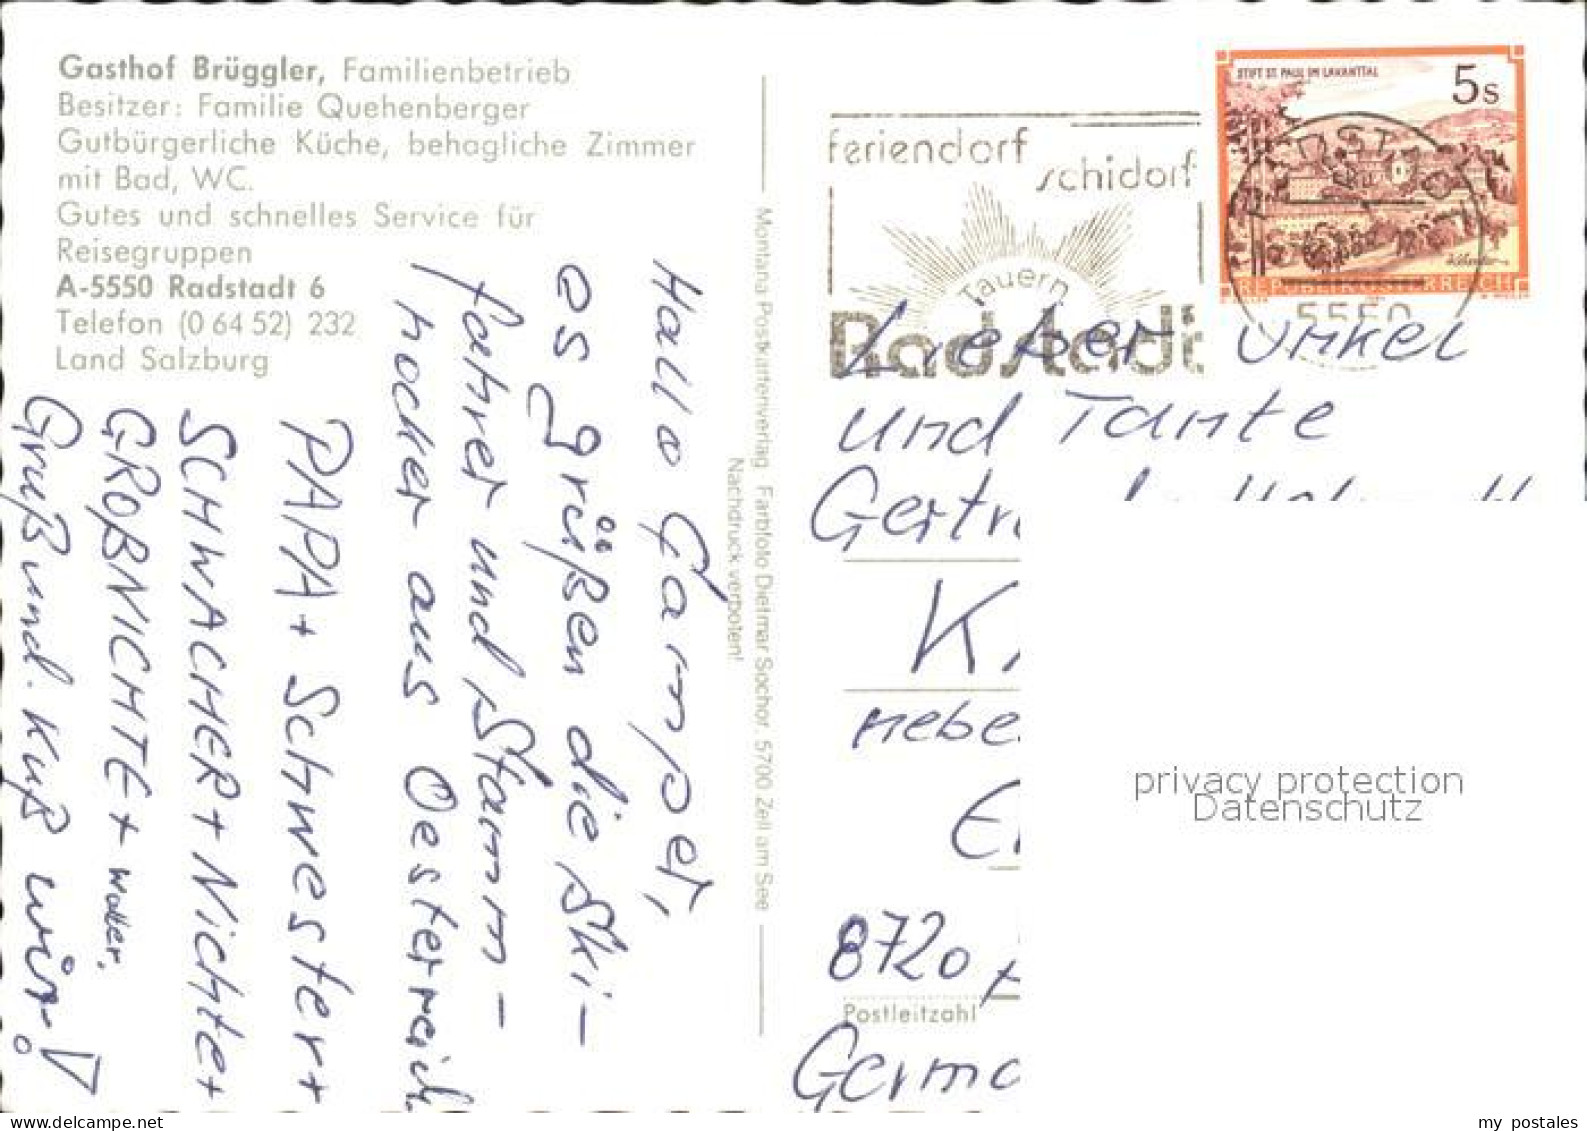 Gasthof Brüggler, Familienbetrieb
Besitzer: Familie Quehenberger
Gutbürgerliche Küche, behagliche Zimmer
mit Bad, WC.
Gutes und schnelles Service für
Reisegruppen
A-5550 Radstadt 6
Telefon (0 64 52) 232
Land Salzburg
Hallo
es grüßen die Ski-
fahrer und Stamm-
hocker aus Oesterreich
PAPA + Schwester +
SCHWACHER + Nichte +
GROßNICHTE +
Gruß und. Kuß wir!
Montana Postkartenverlag Farbfoto Dietmar Sochor, 5700 Zell am See
Nachdruck verboten!
feriendorf
schidorf
Tauern
Radstadt
STIFT ST. PAUL IM LAVANTTAL
5s
REPUBLIK ÖSTERREICH
POST
5550
Lieber Onkel
und Tante
Gertr
K
nebe
E
8720
Postleitzahl
Germa
privacy protection
Datenschutz
my postales